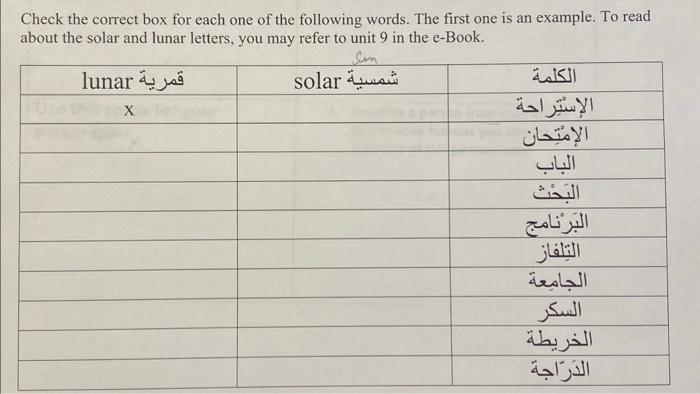 Check the correct box for each one of the following words. The first one is an example. To read
about the solar and lunar letters, you may refer to unit 9 in the e-Book.
lunar قمرية solar شمسية الكلمة
x الإسْتِراحة
الإمْتِحان
الباب
البَحْث
البَرْنامج
التِلفاز
الجامِعة
السكر
الخريطة
الدَرّاجة